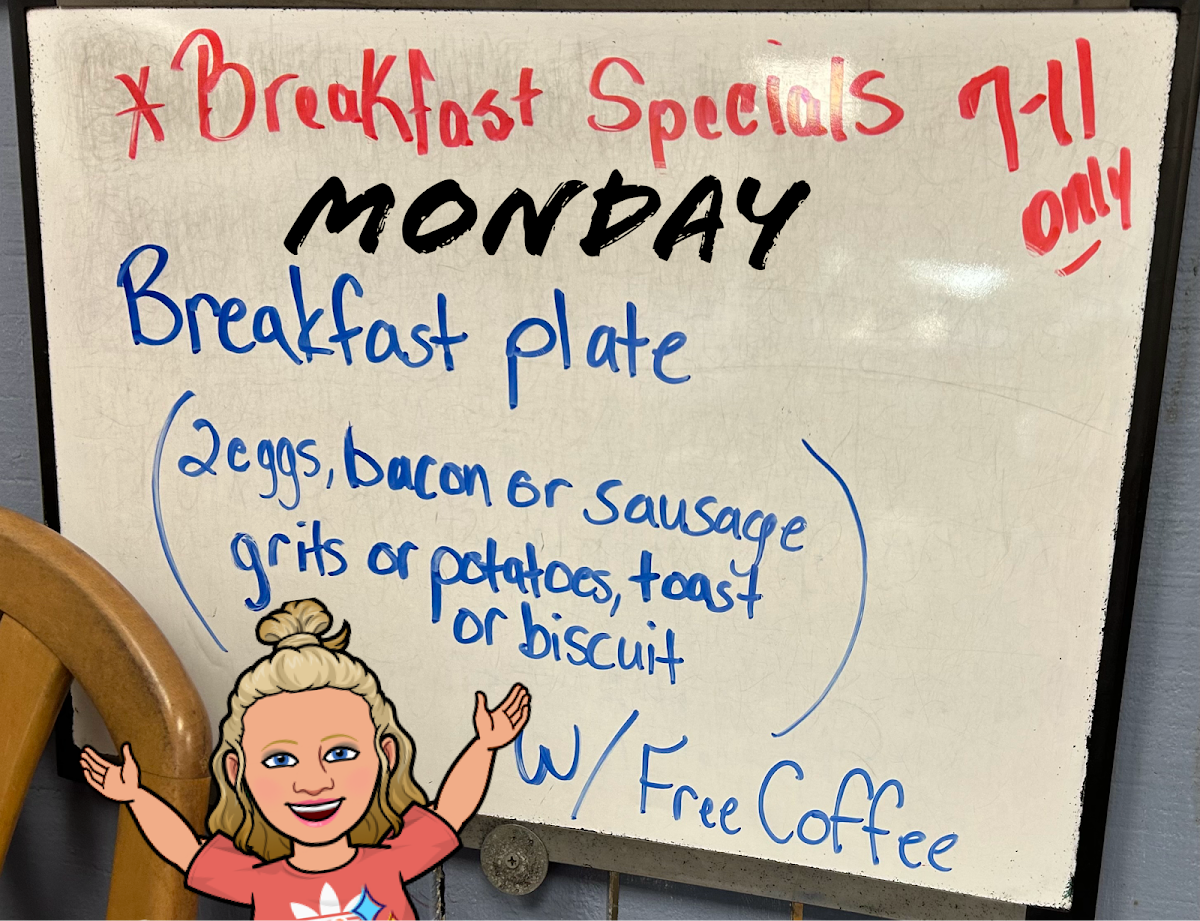 *Breakfast Specials 7-11
only
MONDAY
Breakfast plate
(2eggs, bacon or sausage
grits or potatoes, toast
or biscuit)
W/Free Coffee